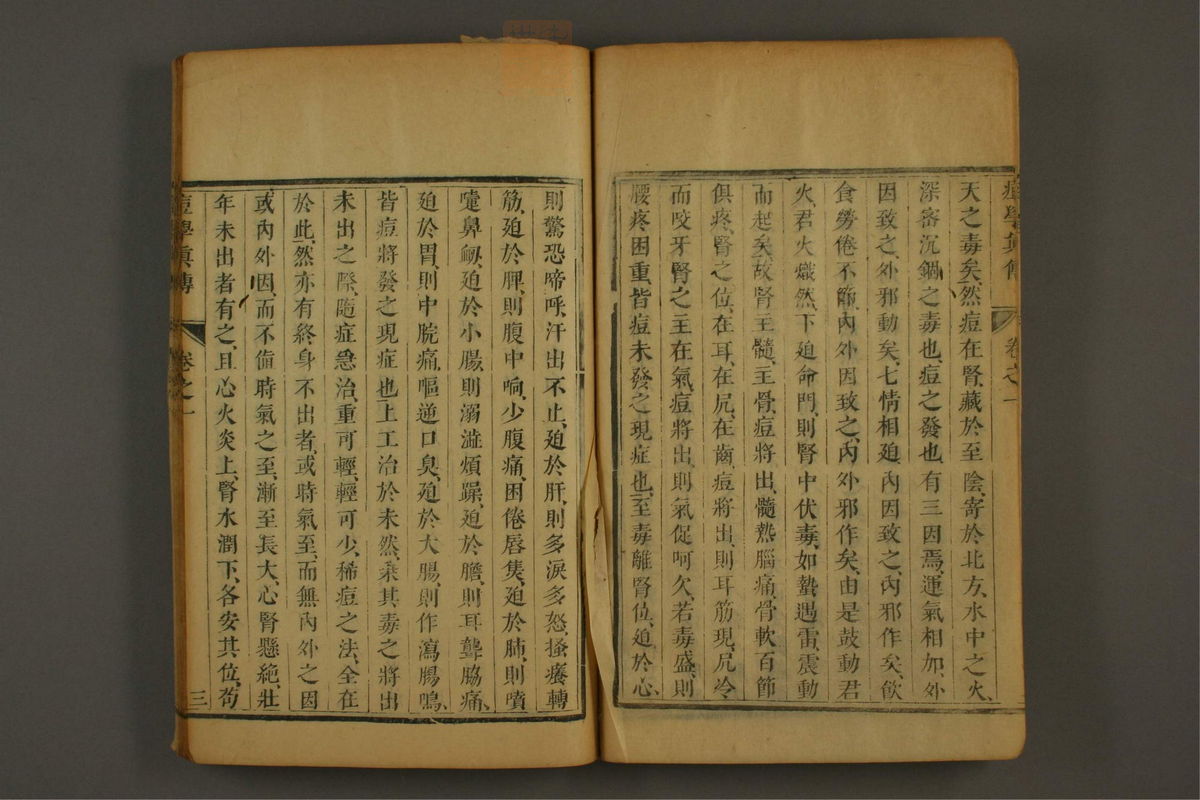 痘學眞傳 卷之一
天之毒矣、然痘在腎、藏於至陰、寄於北方、水中之火、
深密沉錮之毒也、痘之發也、有三因焉、運氣相加、外
因致之、外邪動矣、七情相廹、內因致之、內邪作矣、飲
食勞倦不節、內外因致之、內外邪作矣、由是鼓動君
火、君火熾然、下廹命門、則腎中伏毒、如蟄遇雷、震動
而起矣、故腎主髓、主骨、痘將出、髓熱腦痛、骨軟百節
俱疼、腎之位、在耳、在尻、在齒、痘將出、則耳筋現、尻冷、
而咬牙、腎之主在氣、痘將出、則氣促呵欠、若毒盛、則
腰疼困重、皆痘未發之現症也、至毒離腎位、廹於心、
則驚恐啼呼、汗出不止、廹於肝、則多淚多怒、搔癢轉
筋、廹於脾、則腹中响、少腹痛、困倦唇焦、廹於肺、則噴
嚏鼻衂、廹於小腸、則溺澁煩躁、廹於膽、則耳聾脇痛、
廹於胃、則中脘痛、嘔逆口臭、廹於大腸、則作瀉腸鳴、
皆痘將發之現症也、上工治於未然、乘其毒之將出
未出之際、隨症急治、重可輕、輕可少、稀痘之法、全在
於此、然亦有終身不出者、或時氣至、而無內外之因
或內外因、而不值時氣之至、漸至長大、心腎懸絕、壯
年未出者有之、且心火炎上、腎水潤下、各安其位、苟
痘學眞傳 卷之一 三